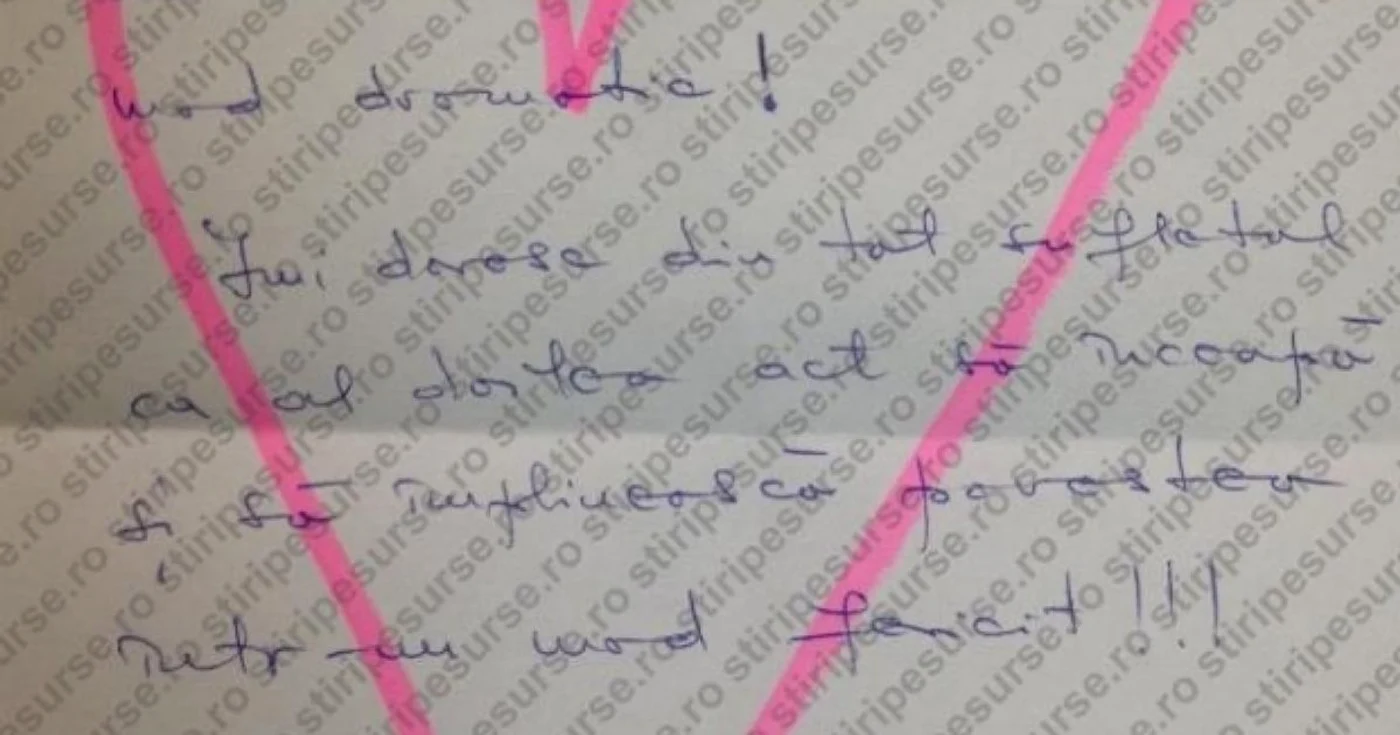 mod dramatic !
Îmi doresc din tot sufletul
ca al doilea act să înceapă
și să împlinească povestea
într-un mod fericit !!!
stiripesurse.ro